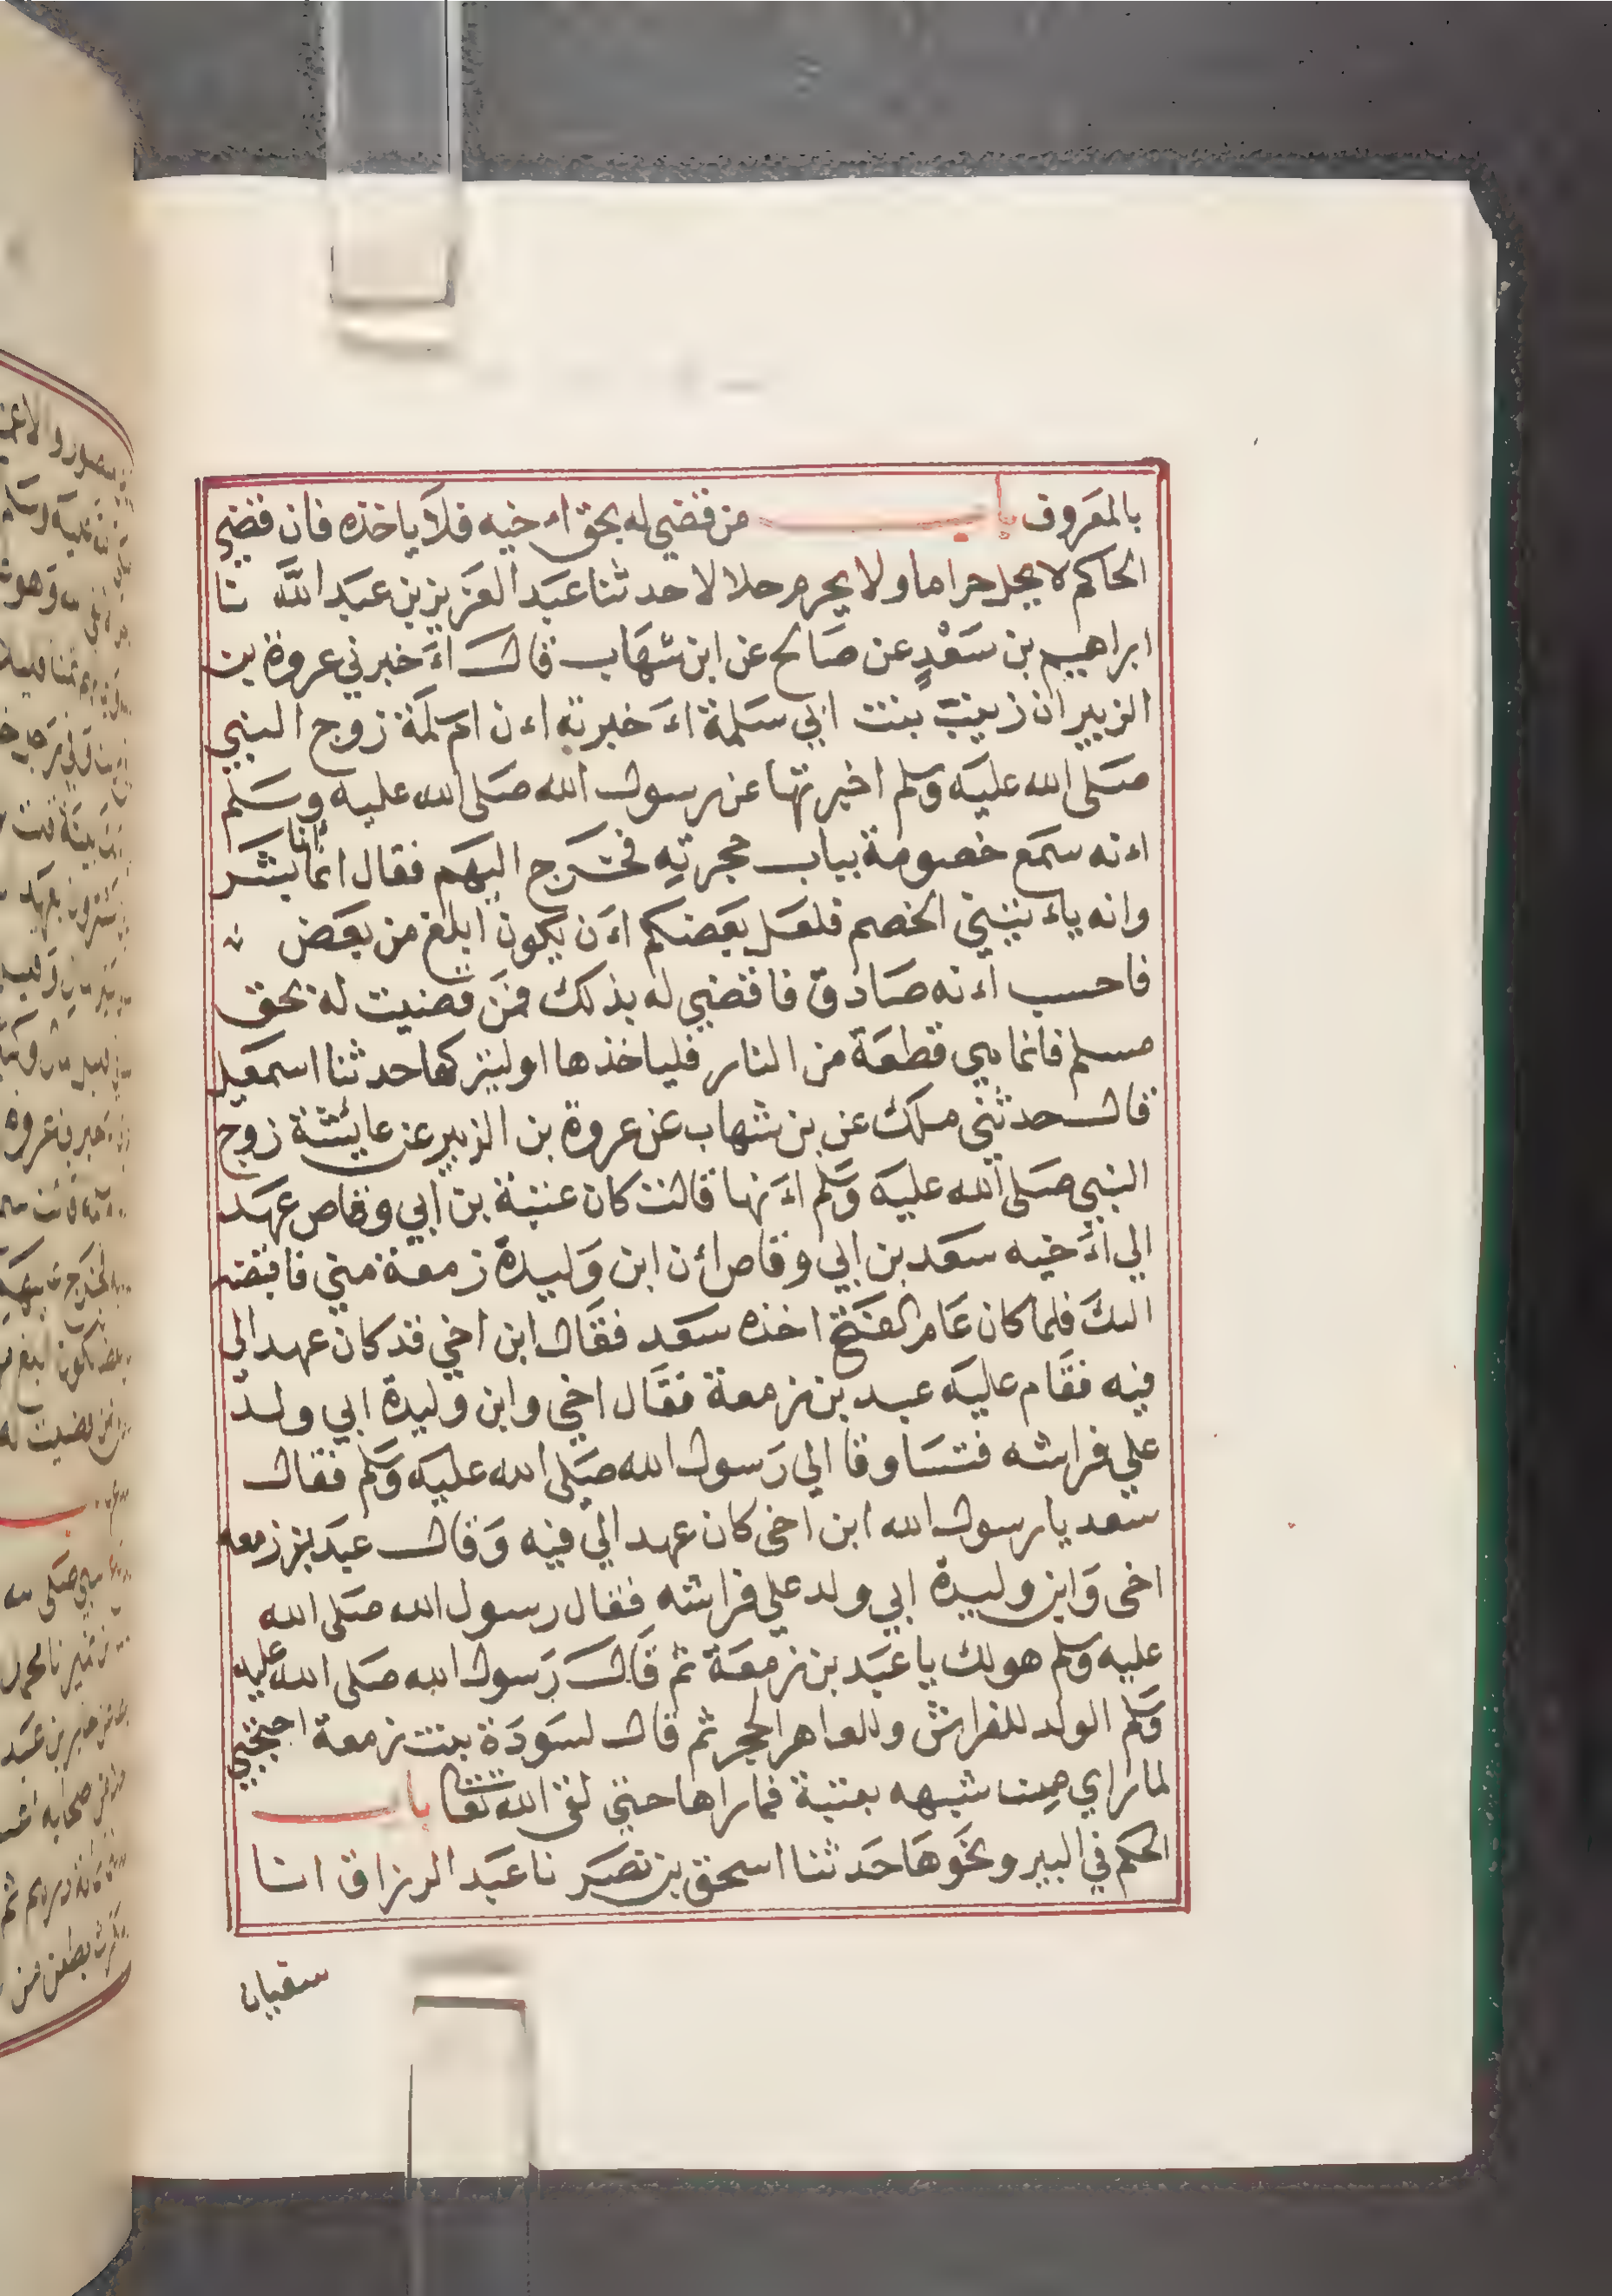 بالمعروف باب من قضي له بحق اء خيه فلا ياخذه فان قضي
الحاكم لا يحل حراما ولا يحرم حلالا حدثنا عبد العزيز بن عبد الله نا
ابراهيم بن سعد عن صالح عن ابن شهاب قال اء خبرني عروة بن
الزبير ان زينب بنت ابي سلمة اء خبرته اء ن ام سلمة زوج النبي
صلى الله عليه وسلم اخبرتها عن رسول الله صلى الله عليه وسلم
اء نه سمع خصومة بباب حجرته فخرج اليهم فقال انما انا بشر
وانه ياء تيني الخصم فلعل بعضكم اء ن يكون ابلغ من بعض
فاحسب اء نه صادق فاقضي له بذلك فمن قضيت له بحق
مسلم فانما هي قطعة من النار فلياخذها او ليتركها حدثنا اسمعيل
قال حدثني ملك عن بن شهاب عن عروة بن الزبير عن عايشة زوج
النبي صلى الله عليه وسلم اء نها قالت كان عتبة بن ابي وقاص عهد
الي اء خيه سعد بن ابي وقاص ائن ابن وليدة زمعة مني فاقبضه
اليك فلما كان عام الفتح اخذه سعد فقال ابن اخي قد كان عهد الي
فيه فقام عليه عبد بن زمعة فقال اخي وابن وليدة ابي ولد
علي فراشه فتساوقا الي رسول الله صلى الله عليه وسلم فقال
سعد يا رسول الله ابن اخى كان عهد الي فيه وقال عبد بن زمعه
اخى وابن وليدة ابي ولد علي فراشه فقال رسول الله صلى الله
عليه وسلم هو لك يا عبد بن زمعة ثم قال رسول الله صلى الله عليه
وسلم الولد للفراش وللعاهر الحجر ثم قال لسودة بنت زمعة احتجبي
لما راي من شبهه بعتبة فما راها حتي لقى الله تعا باب
الحكم في البير ونحوها حدثنا اسحق بن نصر نا عبد الرزاق انا
سفيان